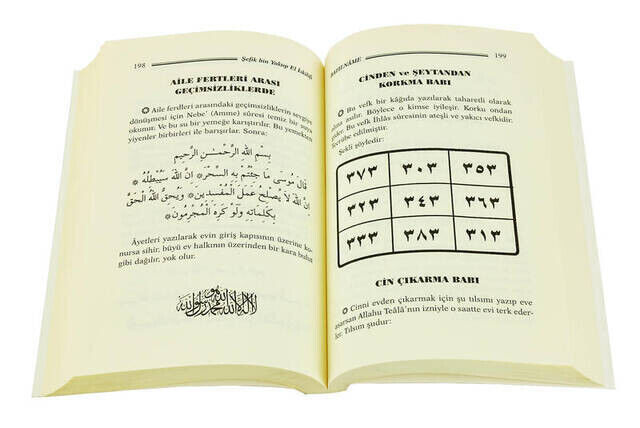 198 Şefik bin Yakup El
AİLE FERTLERİ ARASI
GEÇİMSİZLİKLERDE
Aile ferdleri arasındaki geçimsizliklerin sevgiye
dönüşmesi için Nebe' (Amme) sûresi temiz bir suya
okunur. Ve bu su bir yemeğe karıştırılır. Bu yemekten
yiyenler birbirleri ile barışırlar. Sonra:
بِسْمِ اللهِ الرَّحْمٰنِ الرَّحِيمِ
قَالَ مُوسَى مَا جِئْتُمْ بِهِ السِّحْرَ* اِنَّ اللهَ سَيُبْطِلُهُ*
اِنَّ اللهَ لاَ يَصْلِحُ عَمَلَ الْمُفْسِدِينَ* وَيُحِقُّ اللهُ الْحَقَّ
بِكَلِمَاتِهِ وَلَوْ كَرِهَ الْمُجْرِمُونَ*
Âyetleri yazılarak evin giriş kapısının üzerine ko-
nursa sihir, büyü ev halkının üzerinden bir kara bulut
gibi dağılır, yok olur.
لا اله الا الله محمد رسول الله
199
CİNDEN ve ŞEYTANDAN
KORKMA BABI
Bu vefk bir kâğıda yazılarak taharetli olarak
asılır. Böylece o kimse iyileşir. Korku ondan
Bu vefk İhlâs sûresinin ateşi ve yakıcı vefkidir.
Tecrübe edilmiştir.
Şekli şöyledir:
٣٧٣ ٣٠٣ ٣٥٣
٣٢٣ ٣٤٣ ٣٦٣
٣٣٣ ٣٨٣ ٣١٣
CİN ÇIKARMA BABI
Cinni evden çıkarmak için şu tılsım yazıp eve
asarsan Allahu Teâlâ'nın izniyle o saatte evi terk eder-
ler. Tılsım şudur: